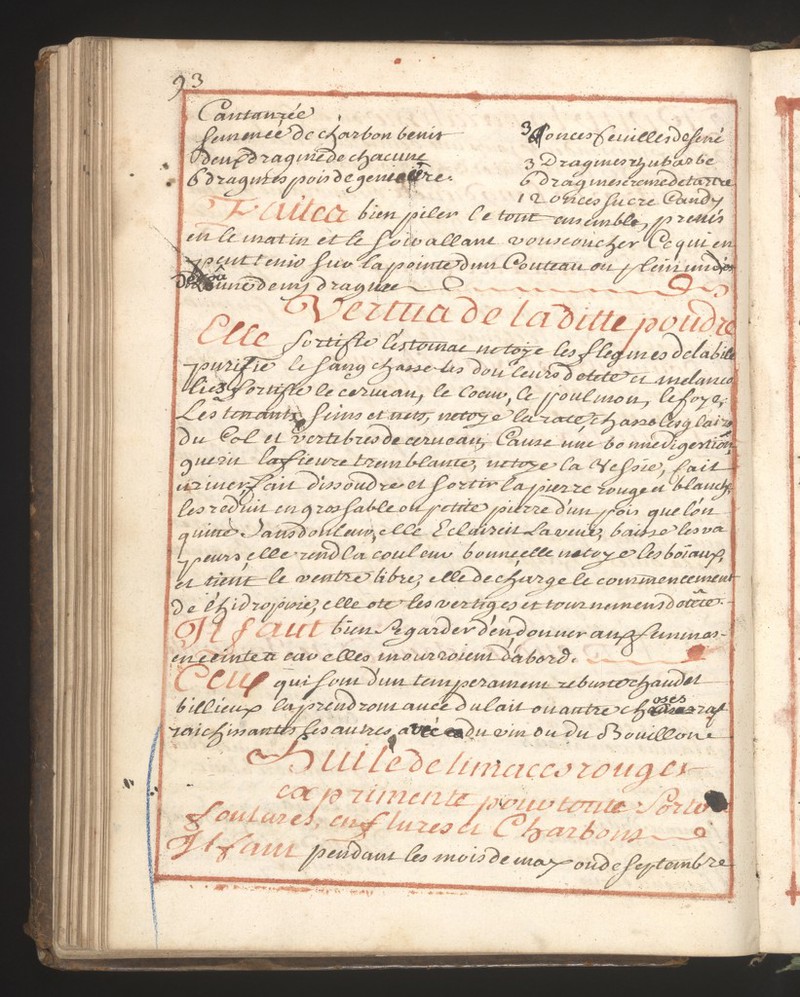 93
Cantaurée
Semence de charbon benit
deux dragme de chacune
6 dragmes pois de genieure.
3 onces feuilles de sené
3 Dragmes rhubarbe
6 dragmes creme de tartre
12 onces sucre Candy
Faites bien piler le tout ensemble, prenés
en le matin et le soir allant vous coucher Ce qui en
peut tenir sur la pointe dun Couteau ou plein un dés
une demy dragme
Vertus de laditte poudre
Elle fortifie léstomac netoye les flegmes de la bile
purifie le sang chasse les douleurs de tete et melanco
lies fortifie le cerueau, le Coeur, le poulmon, le foye,
Les tenants sains et nets, netoye la rate, chasse les glaires
du Col et vertebres de cerueau, Cause une bonne digestion
guerit la fieure tremblante, netoye la Vessie, fait
uriner, fait dissoudre et sortir la pierre rouge et blanche
les réduit en gros sable ou petite pierre d'un pois que lón
quitte sans douleur, elle Eclaircit La veue, baisse les va
peurs elle rend la couleur bonne elle netoye les boïaux,
et tient le ventre libre, elle decharge le commencement
de l'hidropisie, elle ote les vertiges et tournemens de tête.
Il faut bien Regarder d'en donner aux femmes
enceintes car elles mourroient dabord.
Ceux qui sont dun temperament robuste chaud et
billieux la prendront auec du lait ou autre choses raf
raichissantes les autres avéc du vin ou du Bouillon
Huile de limaces rouges
experimenté pour toute sorte
foulures, enflures et Charbons
Il faut pendant les mois de may ou de septembre